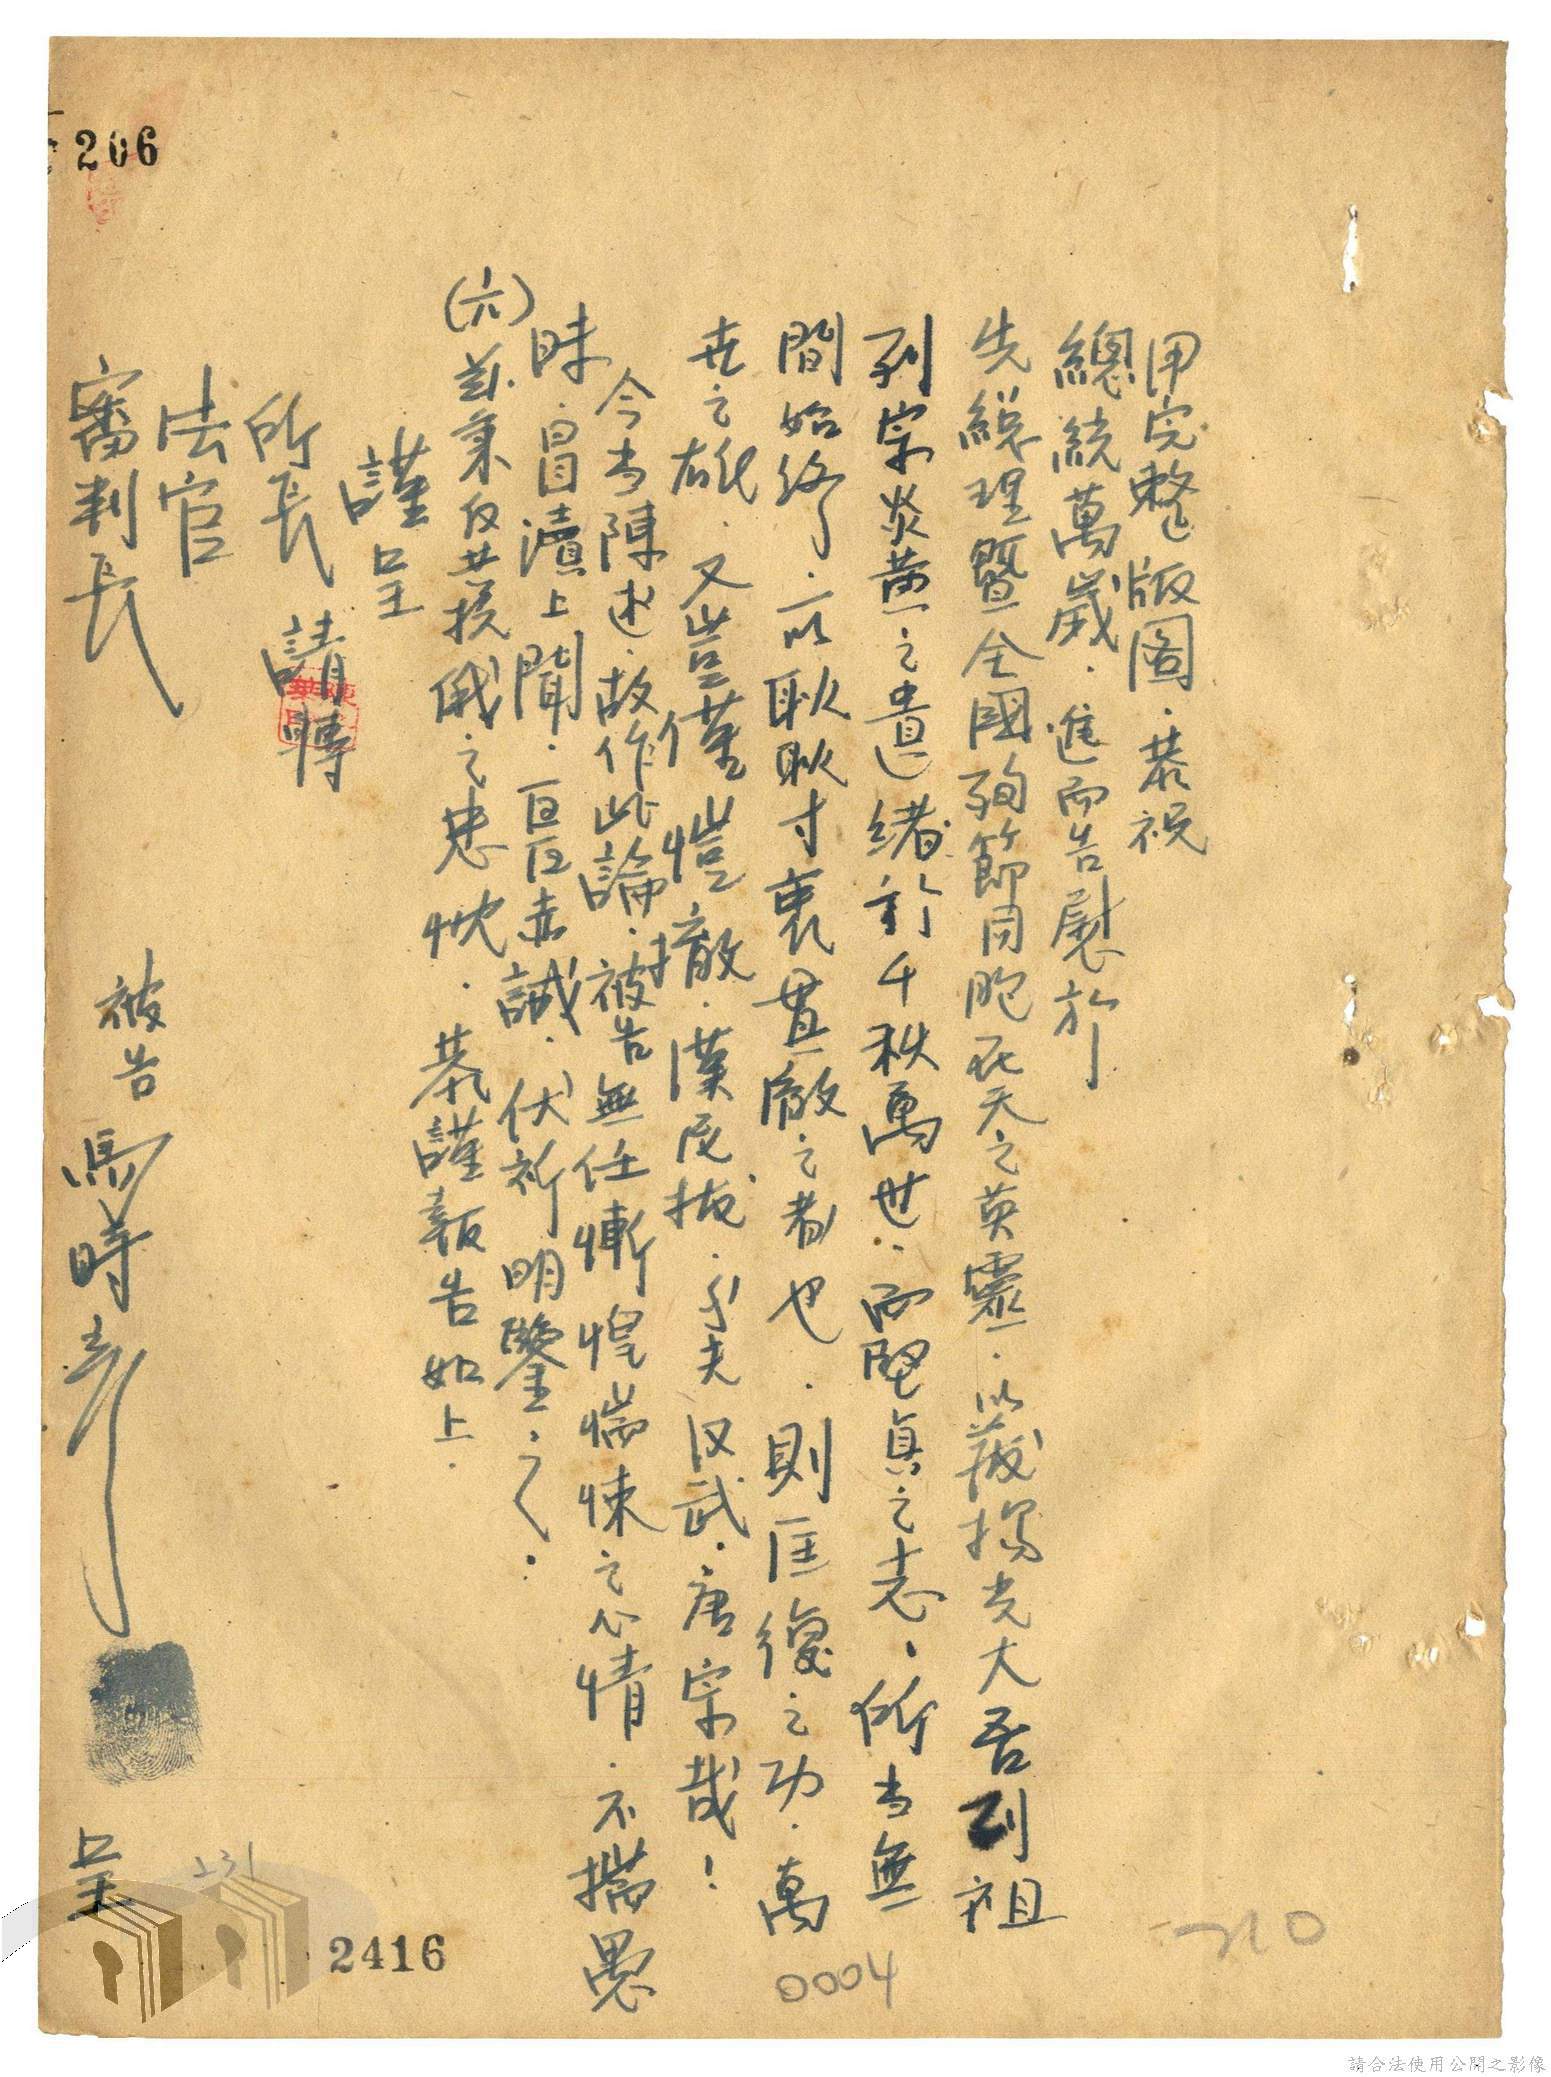 206
甲完整版圖．恭祝
總統萬歲．進而告慰於
先總理暨全國殉節同胞死天之英靈．以葳揚光大吾列祖
列宗炎黃之遺緒於千秩萬世．而堅真之志、所当無
間始終．以耿耿寸衷貫澈之者也．則匡復之功．萬
世之雄．又豈僅愷撤．漢尼拔．乎夫汉武．唐宗哉！
今当陳述．故作此論．被告無任慚惶惴悚之心情．不揣愚
昧．冒瀆上聞．區區赤誠．伏祈明鑒之．
(六)茲秉反共抗俄之忠忱．恭謹報告如上．
謹呈
所長 請轉
法官
審判長
被告 馬時彥 呈
231
2416
0004
210
請合法使用公開之影像